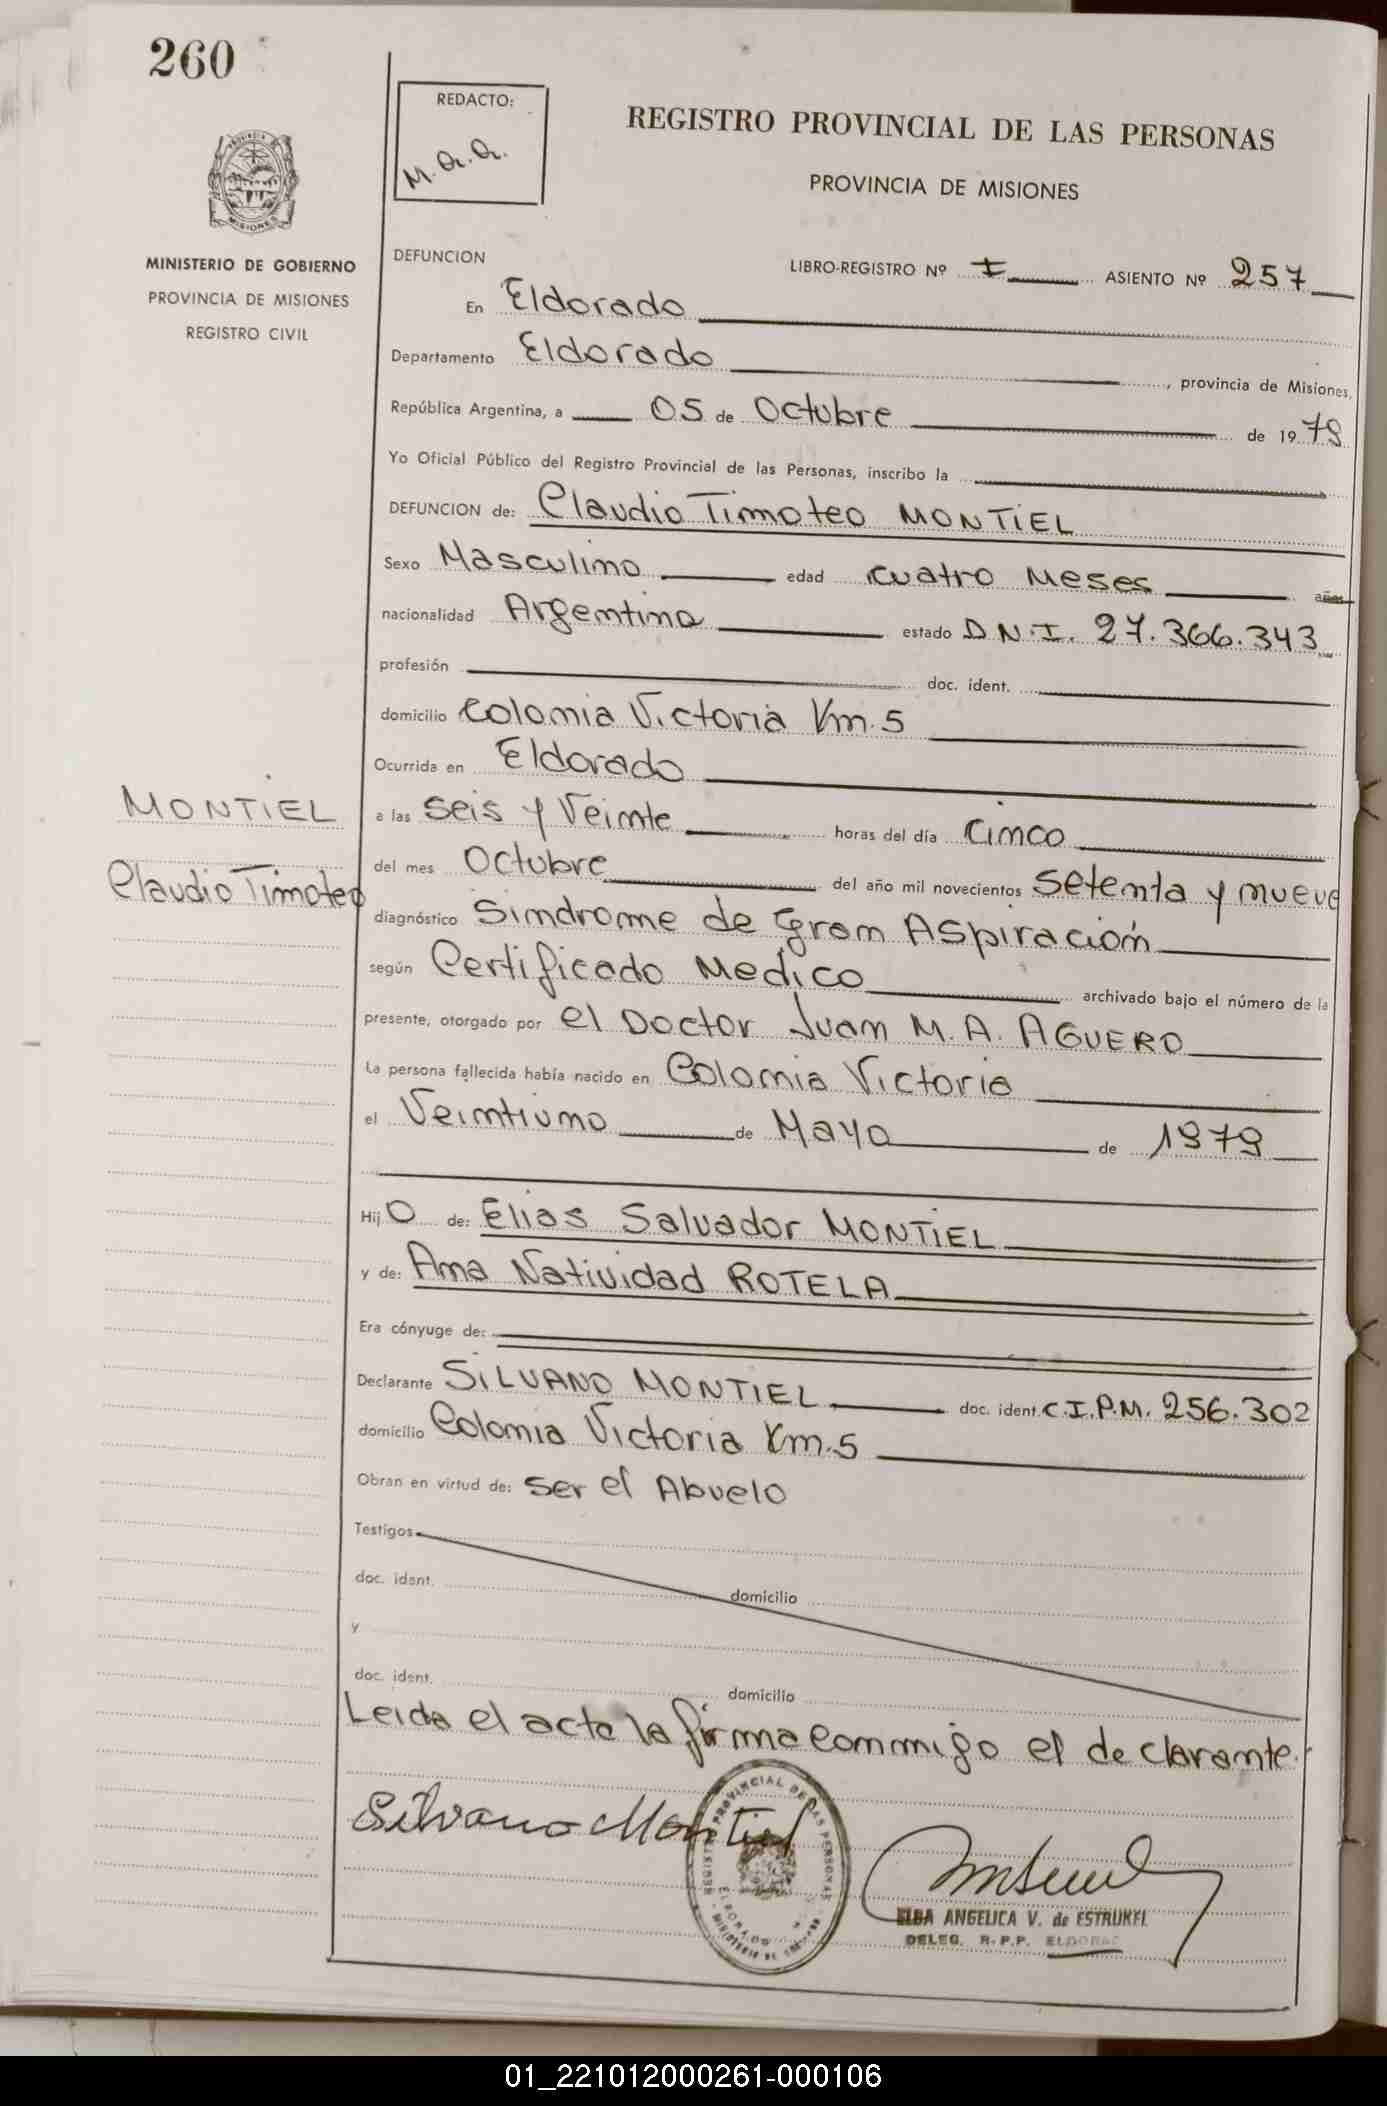 260
REDACTO:
M. A. A.
REGISTRO PROVINCIAL DE LAS PERSONAS
PROVINCIA DE MISIONES
MINISTERIO DE GOBIERNO
PROVINCIA DE MISIONES
REGISTRO CIVIL
DEFUNCION LIBRO-REGISTRO Nº I ASIENTO Nº 257
En Eldorado
Departamento Eldorado, provincia de Misiones,
República Argentina, a 05 de Octubre de 1979
Yo Oficial Público del Registro Provincial de las Personas, inscribo la
DEFUNCION de: Claudio Timoteo MONTIEL
Sexo Masculino edad cuatro Meses años
nacionalidad Argentina estado D N.I. 27.366.343
profesión doc. ident.
domicilio Colonia Victoria Km.5
Ocurrida en Eldorado
MONTIEL
Claudio Timoteo
a las seis y Veinte horas del día cinco
del mes Octubre del año mil novecientos setenta y nueve
diagnóstico Sindrome de Gran Aspiración
según Certificado Medico archivado bajo el número de la
presente, otorgado por el Doctor Juan M. A. AGUERO
La persona fallecida había nacido en Colonia Victoria
el Veintiuno de Mayo de 1979
Hijo de: Elias Salvador MONTIEL
y de: Ana Natividad ROTELA
Era cónyuge de:
Declarante SILVANO MONTIEL doc. ident. C.I.P.M. 256.302
domicilio Colonia Victoria Km.5
Obran en virtud de: ser el Abuelo
Testigos
doc. ident. domicilio
y
doc. ident. domicilio
Leida el acta la firma conmigo el declarante.
Silvano Montiel
REGISTRO PROVINCIAL DE LAS PERSONAS
ELDORADO
MINISTERIO DE
ELBA ANGELICA V. de
DELEG. R.P.P. ELDORADO
01_221012000261-000106